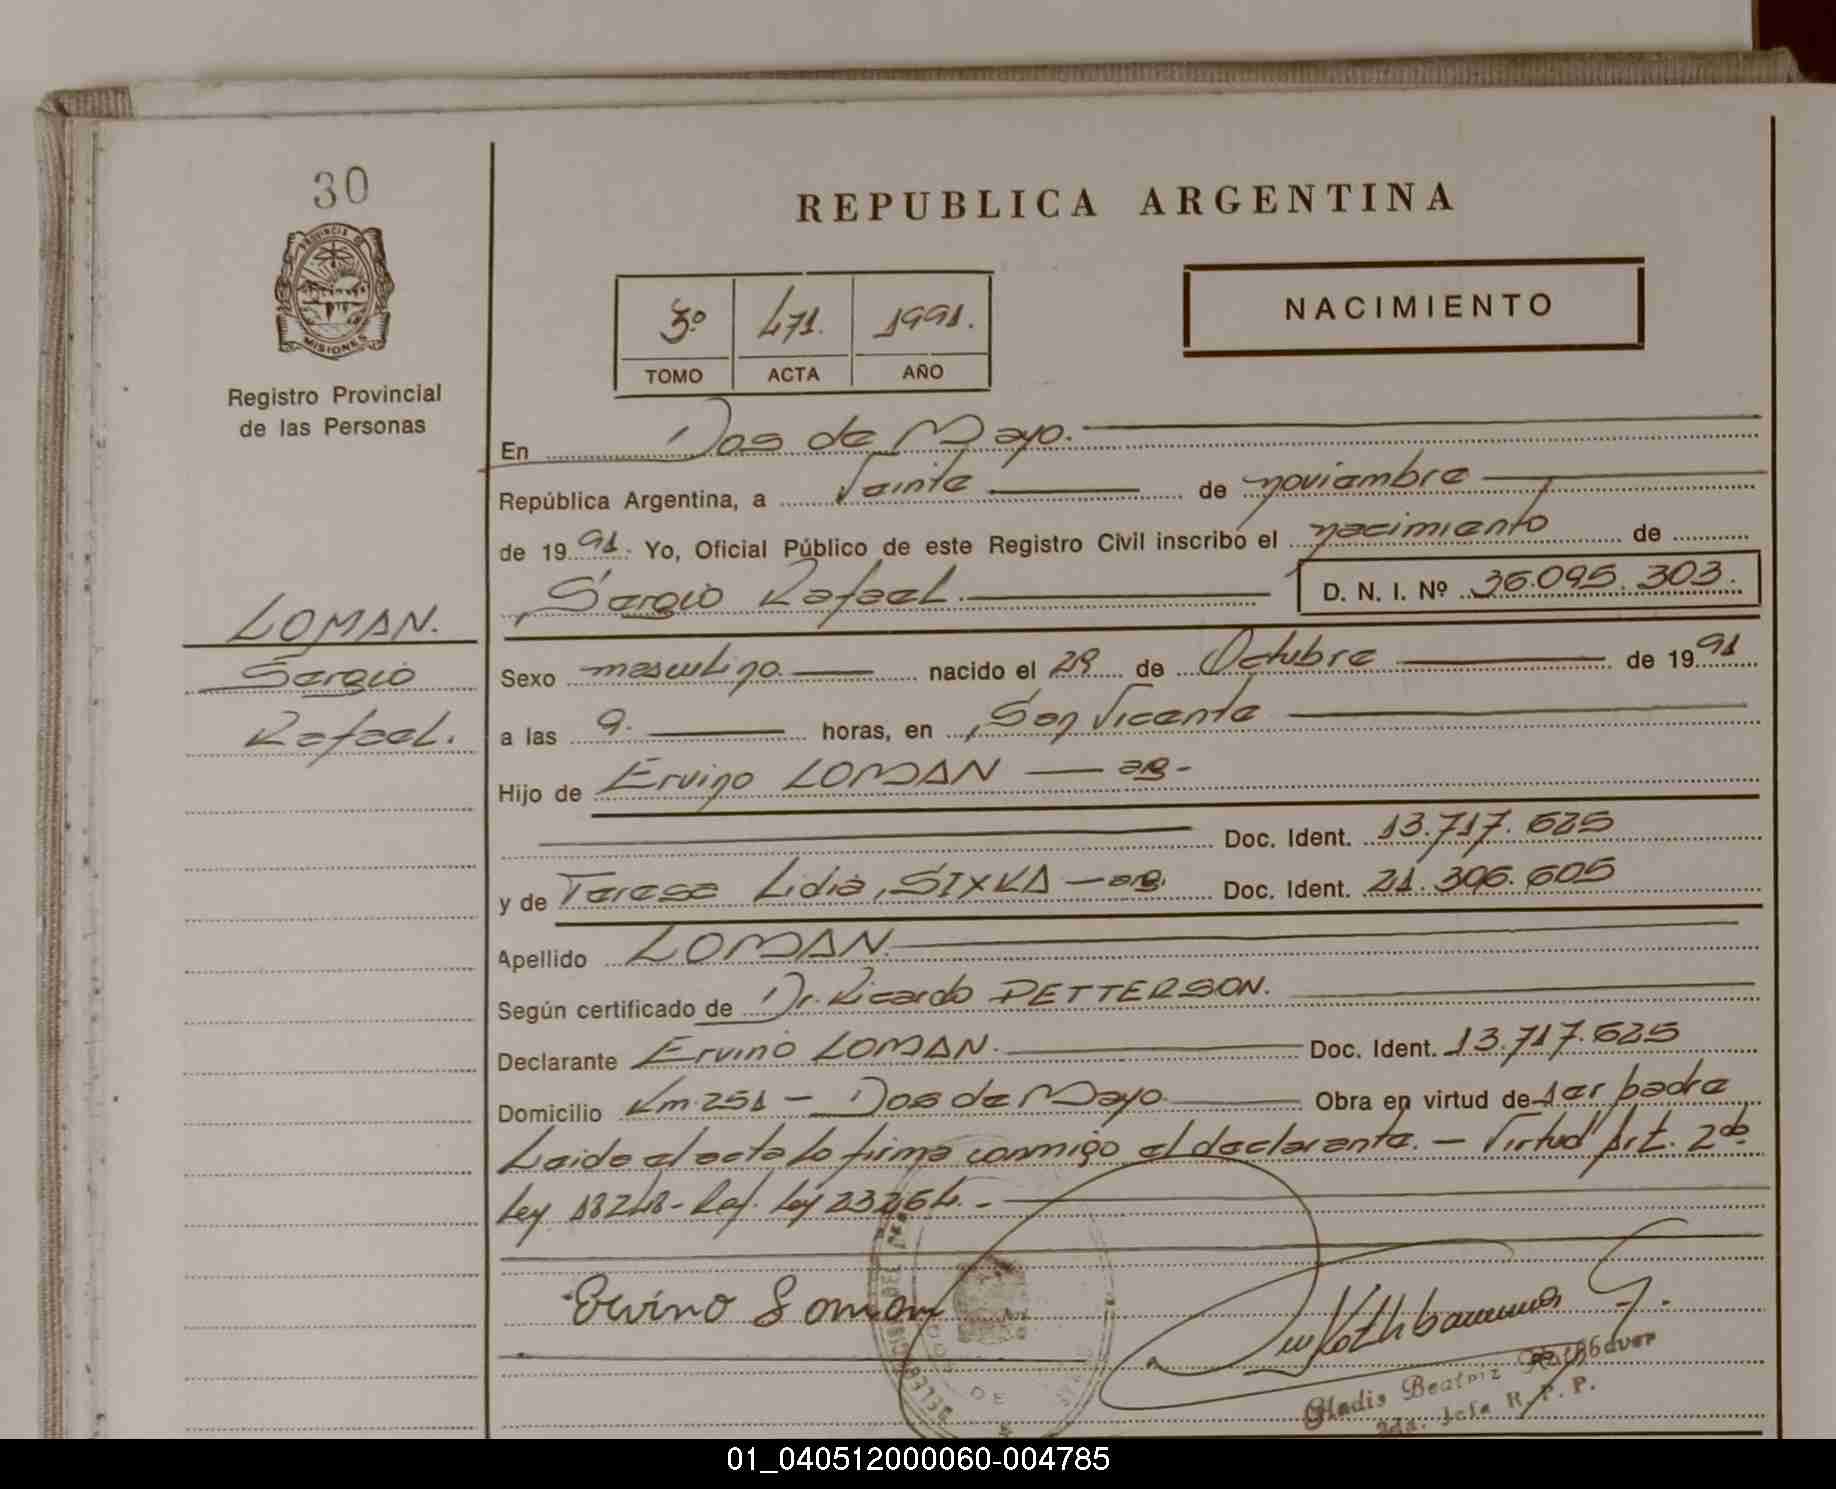 30
PROVINCIA DE
MISIONES
Registro Provincial
de las Personas
REPUBLICA ARGENTINA
NACIMIENTO
3º 471. 1991.
TOMO ACTA AÑO
En Dos de Mayo.
República Argentina, a Veinte de noviembre
de 1991. Yo, Oficial Público de este Registro Civil inscribo el nacimiento de
Sergio Rafael. D. N. I. Nº 36.095.303.
LOMAN.
Sergio
Rafael.
Sexo masculino. nacido el 29 de Octubre de 1991
a las 9. horas, en San Vicente
Hijo de Ervino LOMAN — arg-
Doc. Ident. 13.717.625
y de Teresa Lidia, SIXKA — arg. Doc. Ident. 21.306.605
Apellido LOMAN.
Según certificado de Dr. Ricardo PETTERSON.
Declarante Ervino LOMAN. Doc. Ident. 13.717.625
Domicilio Km. 251 - Dos de Mayo. Obra en virtud de ser padre
Leida el acta lo firma conmigo el declarante. - Virtud Art. 2do
Ley 18248 - Ref. Ley 23264. -
Ervino Loman
Gladis Beatriz Rothbauer
2da. Jefa R. P. P.
01_040512000060-004785